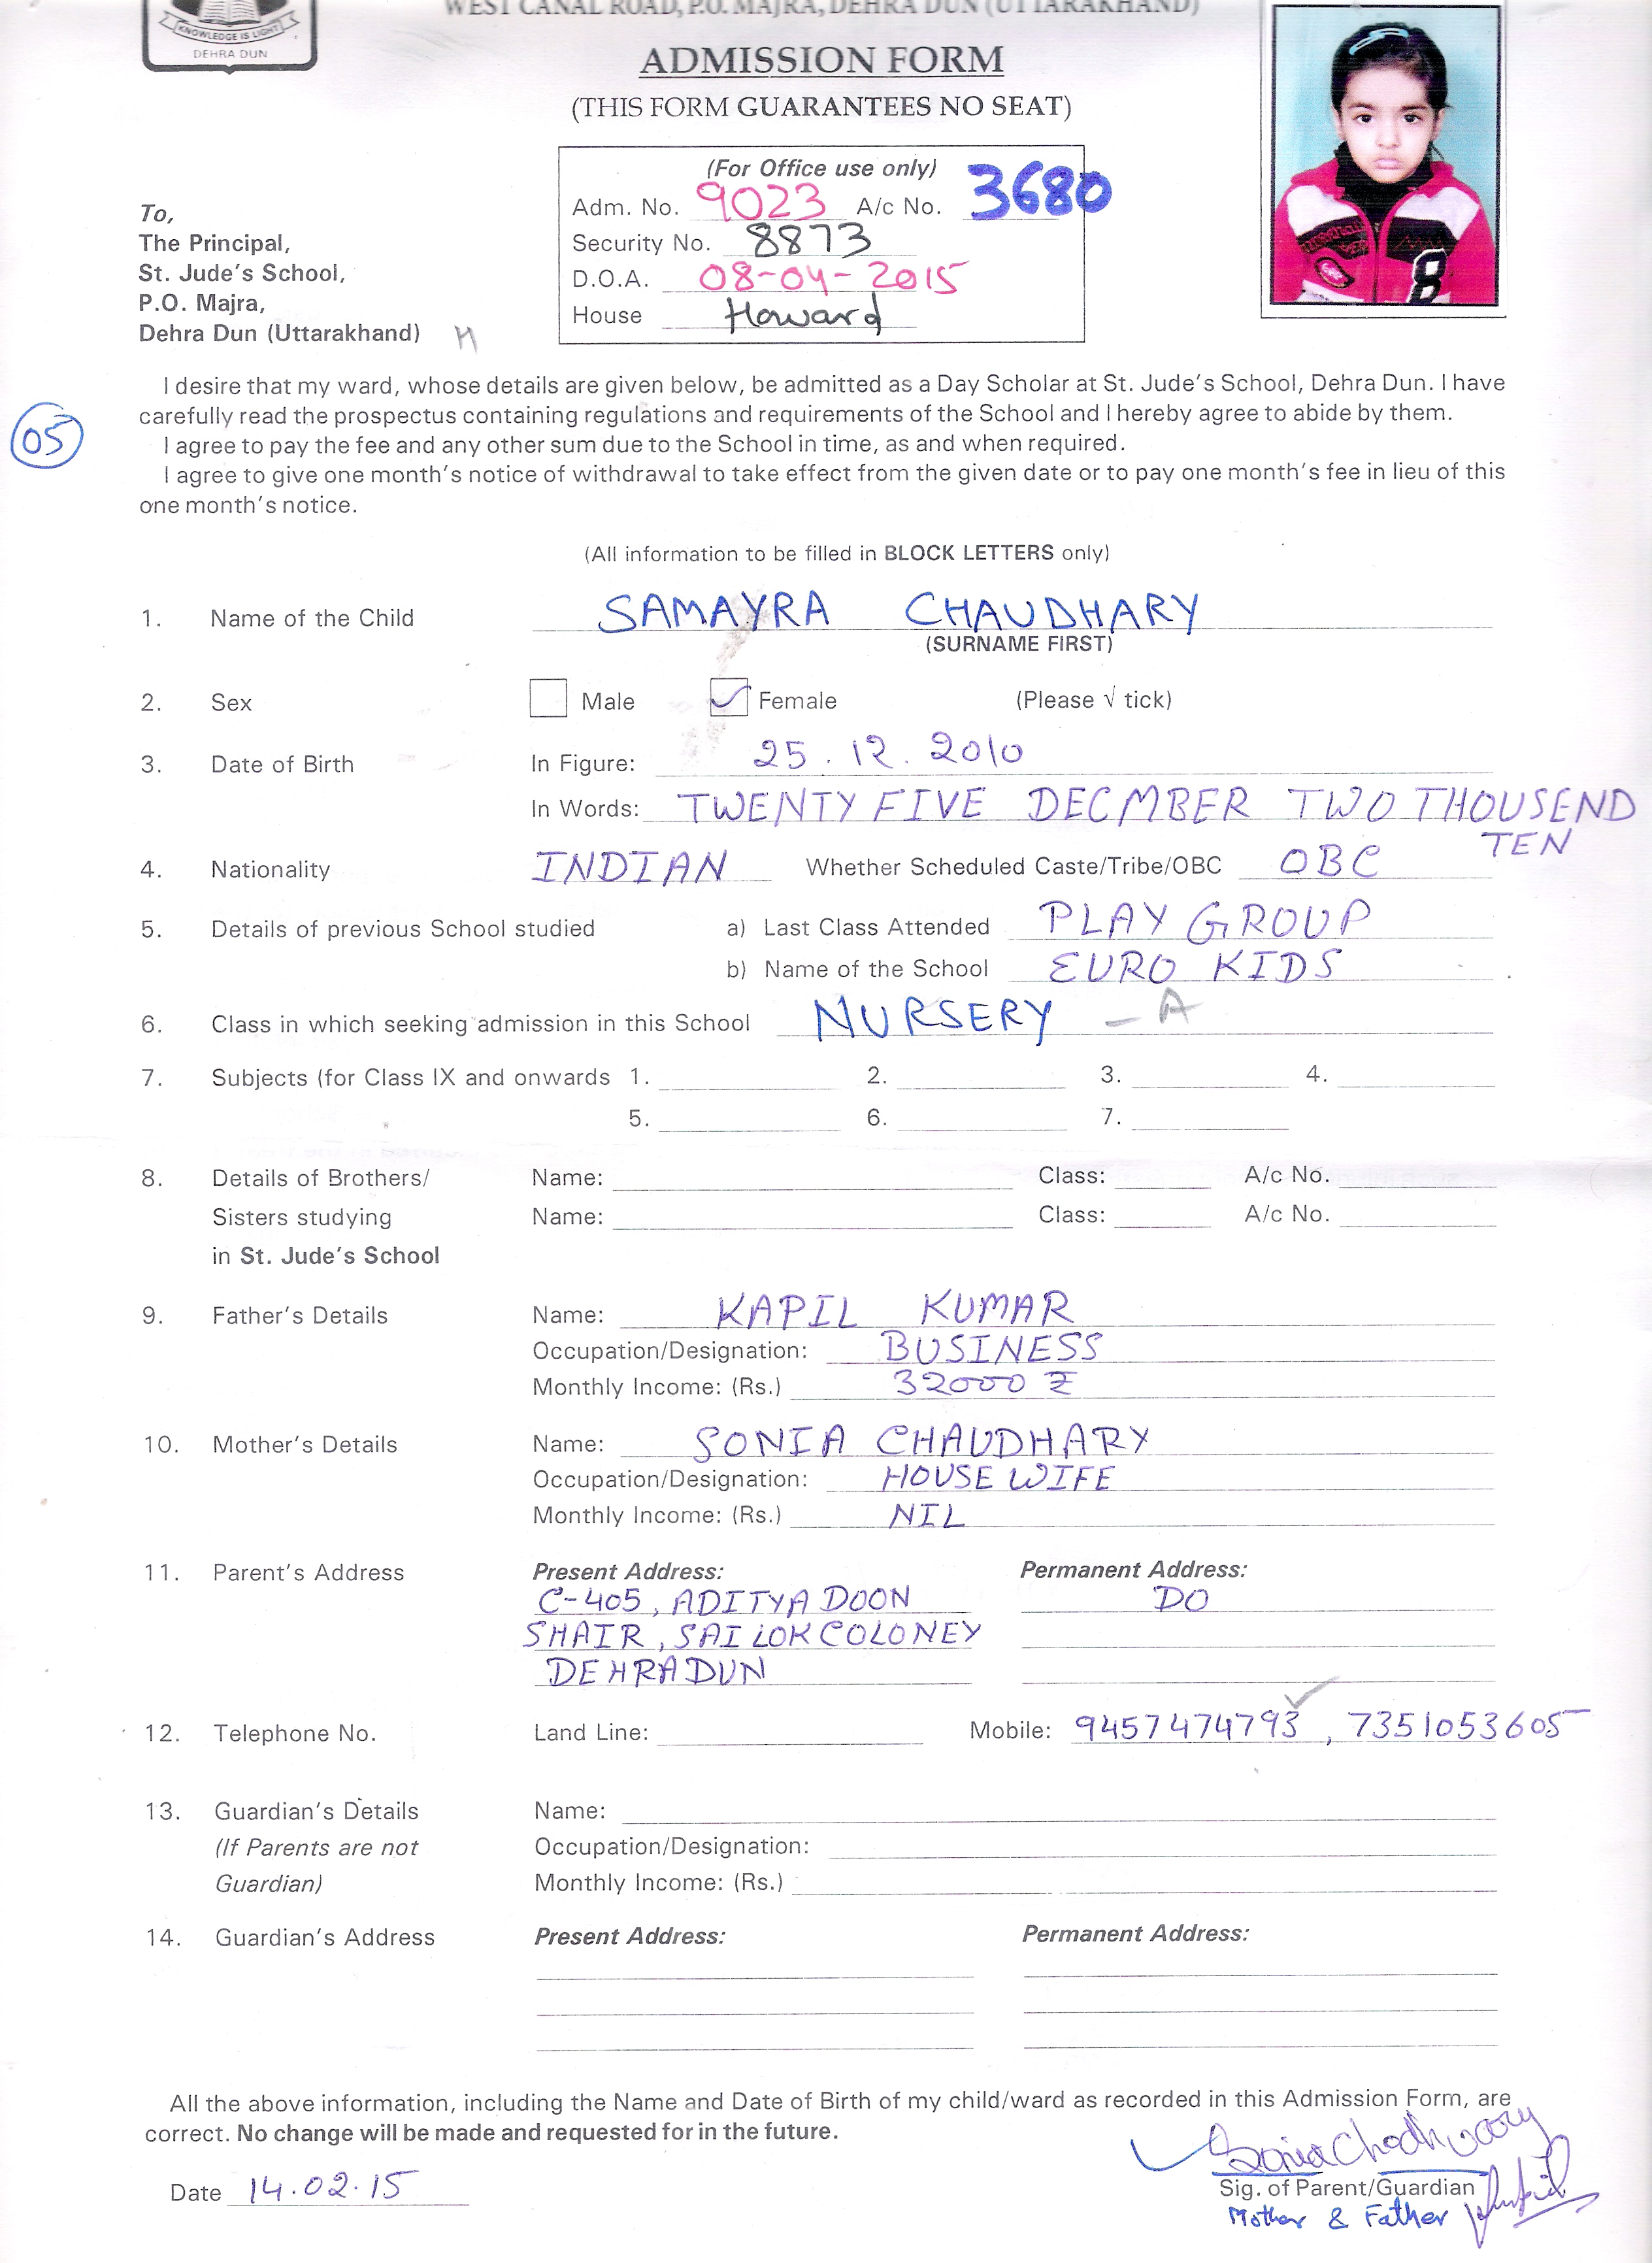 KNOWLEDGE IS LIGHT
DEHRA DUN
WEST CANAL ROAD, P.O. MAJRA, DEHRA DUN (UTTARAKHAND)
ADMISSION FORM
(THIS FORM GUARANTEES NO SEAT)
(For Office use only)
Adm. No. 9023 A/c No. 3680
Security No. 8873
D.O.A. 08-04-2015
House Howard
To,
The Principal,
St. Jude's School,
P.O. Majra,
Dehra Dun (Uttarakhand) H
8
I desire that my ward, whose details are given below, be admitted as a Day Scholar at St. Jude's School, Dehra Dun. I have
carefully read the prospectus containing regulations and requirements of the School and I hereby agree to abide by them.
05
I agree to pay the fee and any other sum due to the School in time, as and when required.
I agree to give one month's notice of withdrawal to take effect from the given date or to pay one month's fee in lieu of this
one month's notice.
(All information to be filled in BLOCK LETTERS only)
1. Name of the Child SAMAYRA CHAUDHARY
(SURNAME FIRST)
2. Sex Male Female (Please √ tick)
3. Date of Birth In Figure: 25.12.2010
In Words: TWENTY FIVE DECMBER TWO THOUSEND
TEN
4. Nationality INDIAN Whether Scheduled Caste/Tribe/OBC OBC
5. Details of previous School studied a) Last Class Attended PLAY GROUP
b) Name of the School EURO KIDS
6. Class in which seeking admission in this School NURSERY - A
7. Subjects (for Class IX and onwards 1. 2. 3. 4.
5. 6. 7.
8. Details of Brothers/ Name: Class: A/c No.
Sisters studying Name: Class: A/c No.
in St. Jude's School
9. Father's Details Name: KAPIL KUMAR
Occupation/Designation: BUSINESS
Monthly Income: (Rs.) 32000 ₹
10. Mother's Details Name: SONIA CHAUDHARY
Occupation/Designation: HOUSE WIFE
Monthly Income: (Rs.) NIL
11. Parent's Address Present Address: Permanent Address:
C-405, ADITYA DOON DO
SHAIR, SAI LOK COLONEY
DEHRADUN
12. Telephone No. Land Line: Mobile: 9457474793, 7351053605
13. Guardian's Details Name:
(If Parents are not Occupation/Designation:
Guardian) Monthly Income: (Rs.)
14. Guardian's Address Present Address: Permanent Address:
All the above information, including the Name and Date of Birth of my child/ward as recorded in this Admission Form, are
correct. No change will be made and requested for in the future.
Sonia Chodhvary
Date 14.02.15 Sig. of Parent/Guardian
Mother & Father